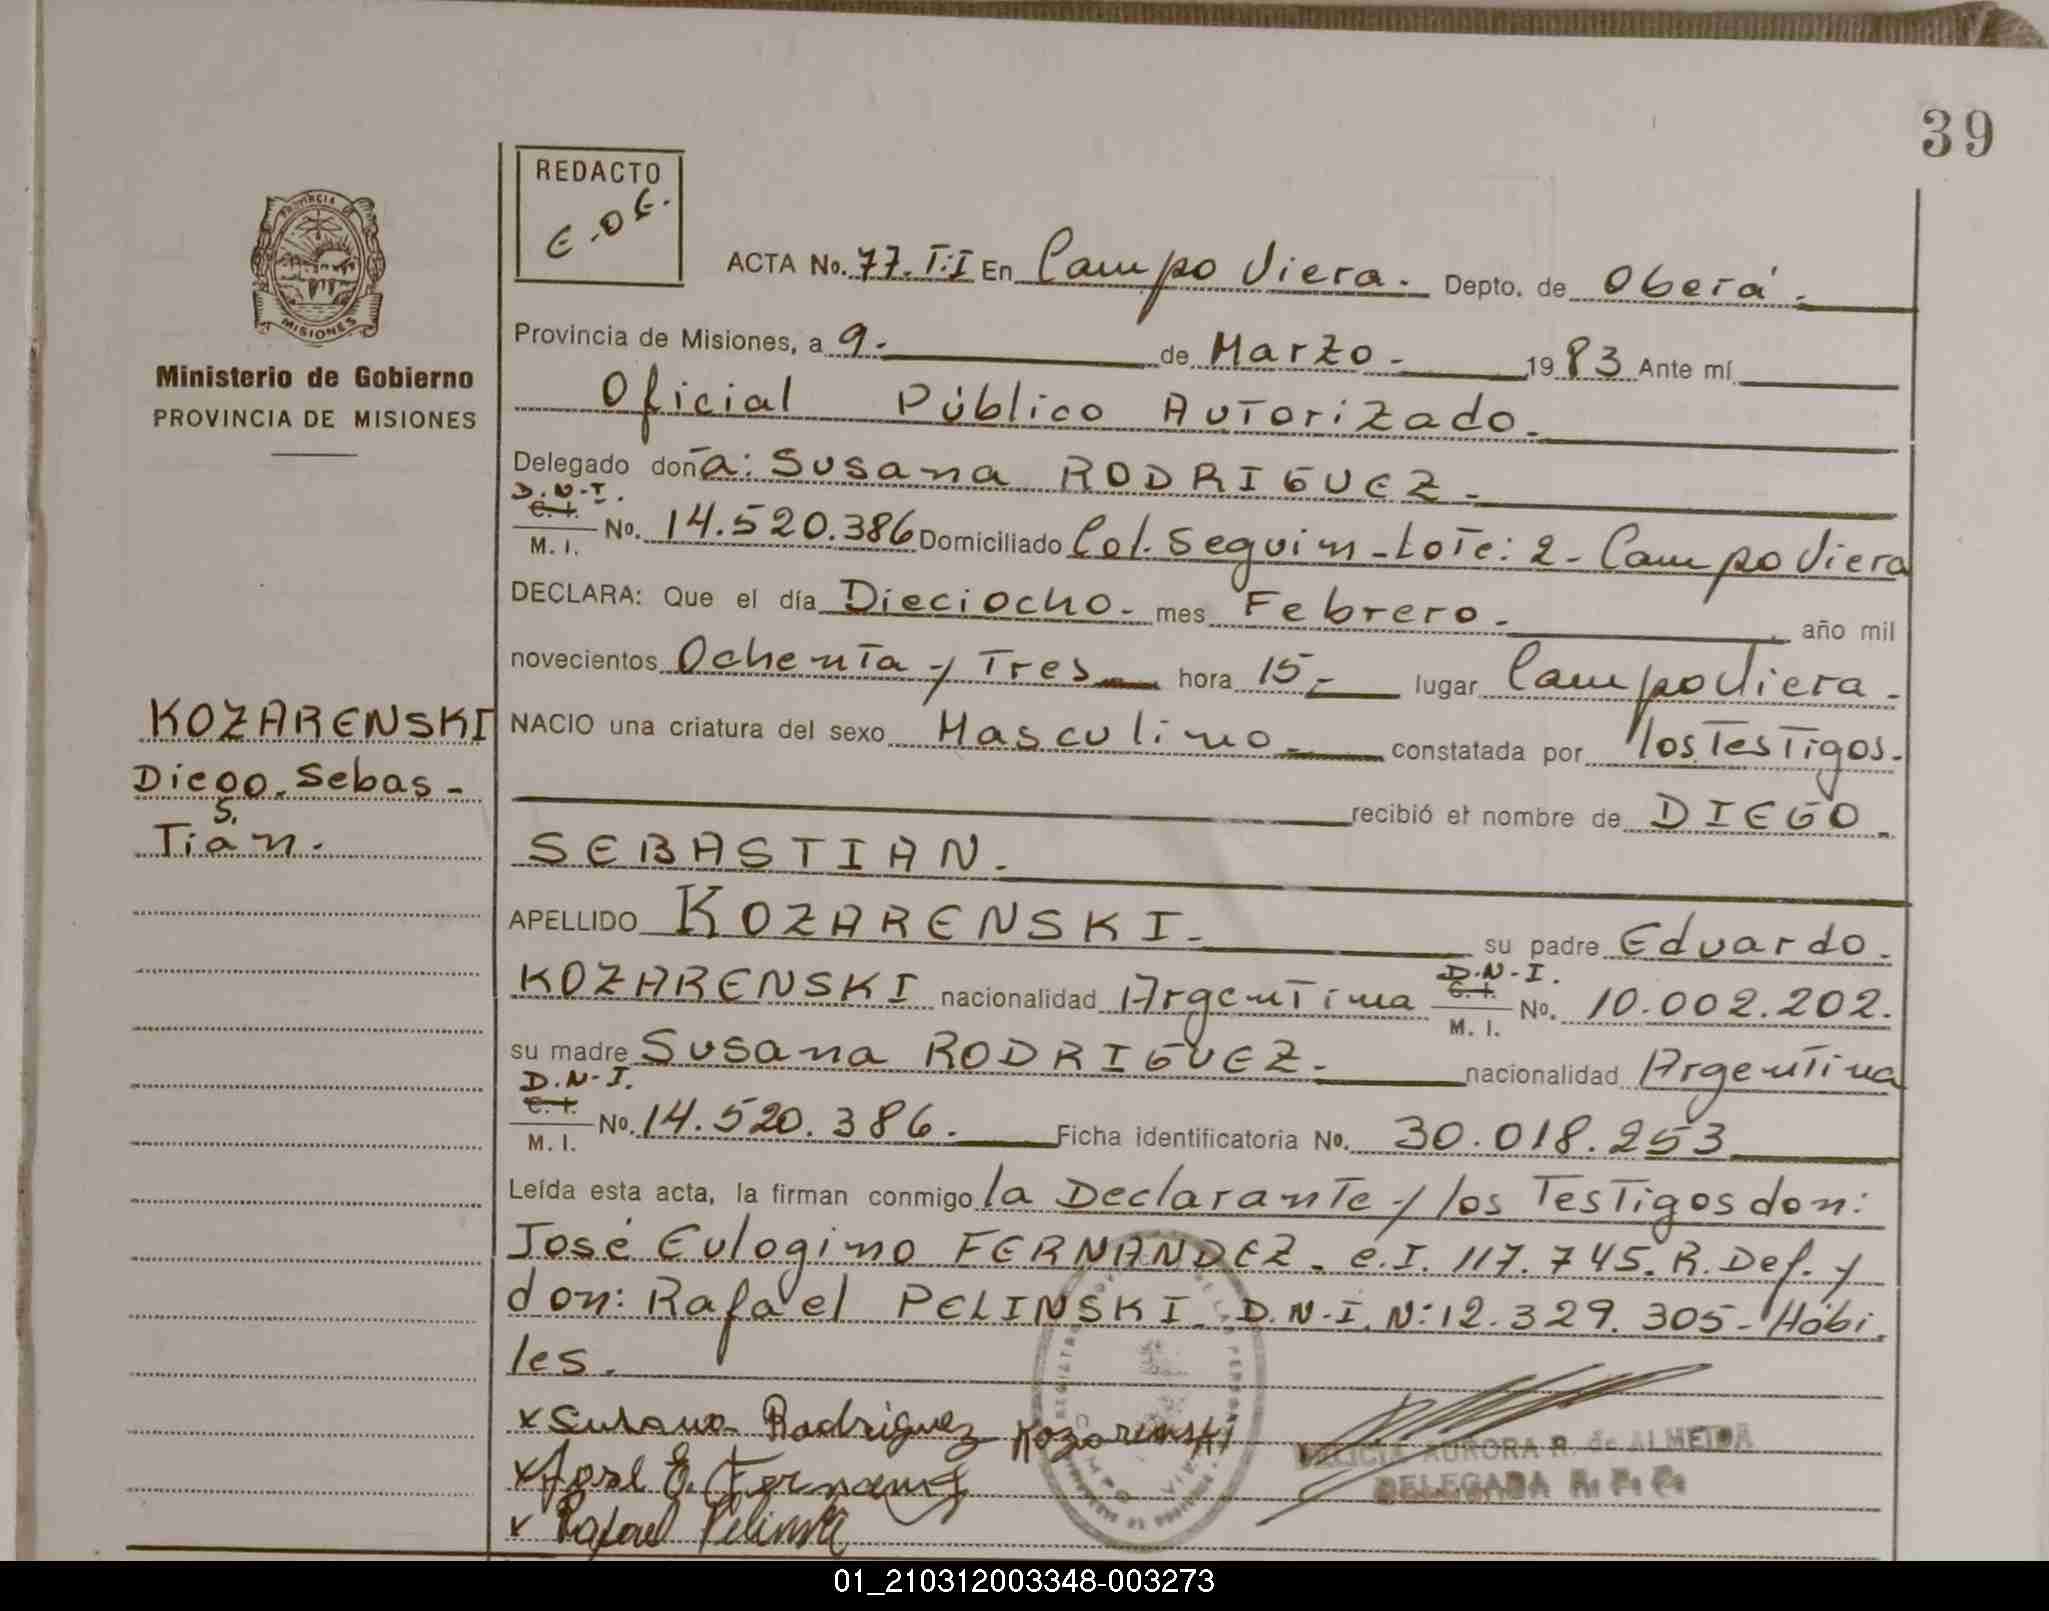 39
PROVINCIA DE
MISIONES
Ministerio de Gobierno
PROVINCIA DE MISIONES
KOZARENSKI
Diego. Sebas-
S.
Tián.
REDACTO
E.O.E.
ACTA No. 77.T:I En Campo Viera. Depto. de Oberá.
Provincia de Misiones, a 9. de Marzo. 1983 Ante mí
Oficial Público Autorizado.
Delegado doña: Susana RODRIGUEZ.
D.N.I.
C. I.
M. I. No. 14.520.386 Domiciliado Col. Seguim-Lote: 2- Campo Viera
DECLARA: Que el día Dieciocho. mes Febrero. año mil
novecientos Ochenta y Tres hora 15 lugar Campo Viera.
NACIO una criatura del sexo Masculino. constatada por los Testigos.
recibió el nombre de DIEGO.
SEBASTIAN.
APELLIDO KOZARENSKI. su padre Eduardo.
D.N.I.
KOZARENSKI nacionalidad Argentina C. I. M. I. No. 10.002.202.
su madre Susana RODRIGUEZ. nacionalidad Argentina
D.N.I.
C. I.
M. I. No. 14.520.386. Ficha identificatoria No. 30.018.253
Leída esta acta, la firman conmigo la Declarante y los Testigos don:
José Eulogino FERNANDEZ. C.I. 117.745. R. Def. y
don: Rafael PELINSKI. D.N.I. N: 12.329.305- Hábi.
les.
x Susana Rodriguez Kozarenski
x José E. Fernandez
x Rafael Pelinski
AURORA R. de ALMEIDA
DELEGADA R. P. P.
01_210312003348-003273